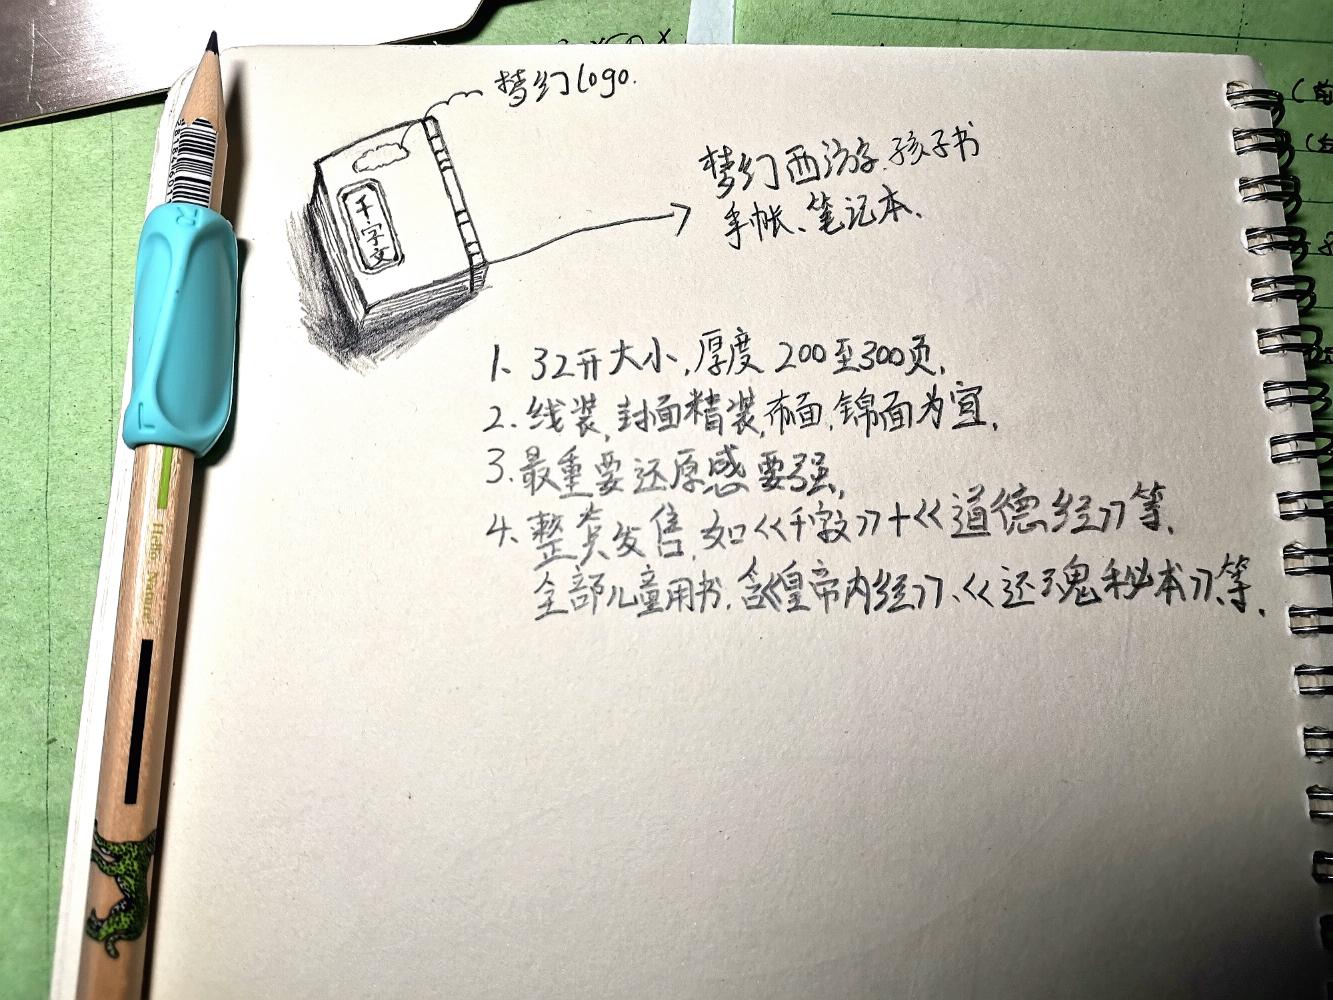 梦幻logo.
千字文
梦幻西游.孩子书
手帐、笔记本、
1、32开大小,厚度200至300页,
2.线装,封面精装,布面,锦面为宜.
3.最重要还原感要强,
4.整套发售,如《千字文》+《道德经》等.
全部儿童用书.含《皇帝内经》、《还魂秘本》等.
R
L